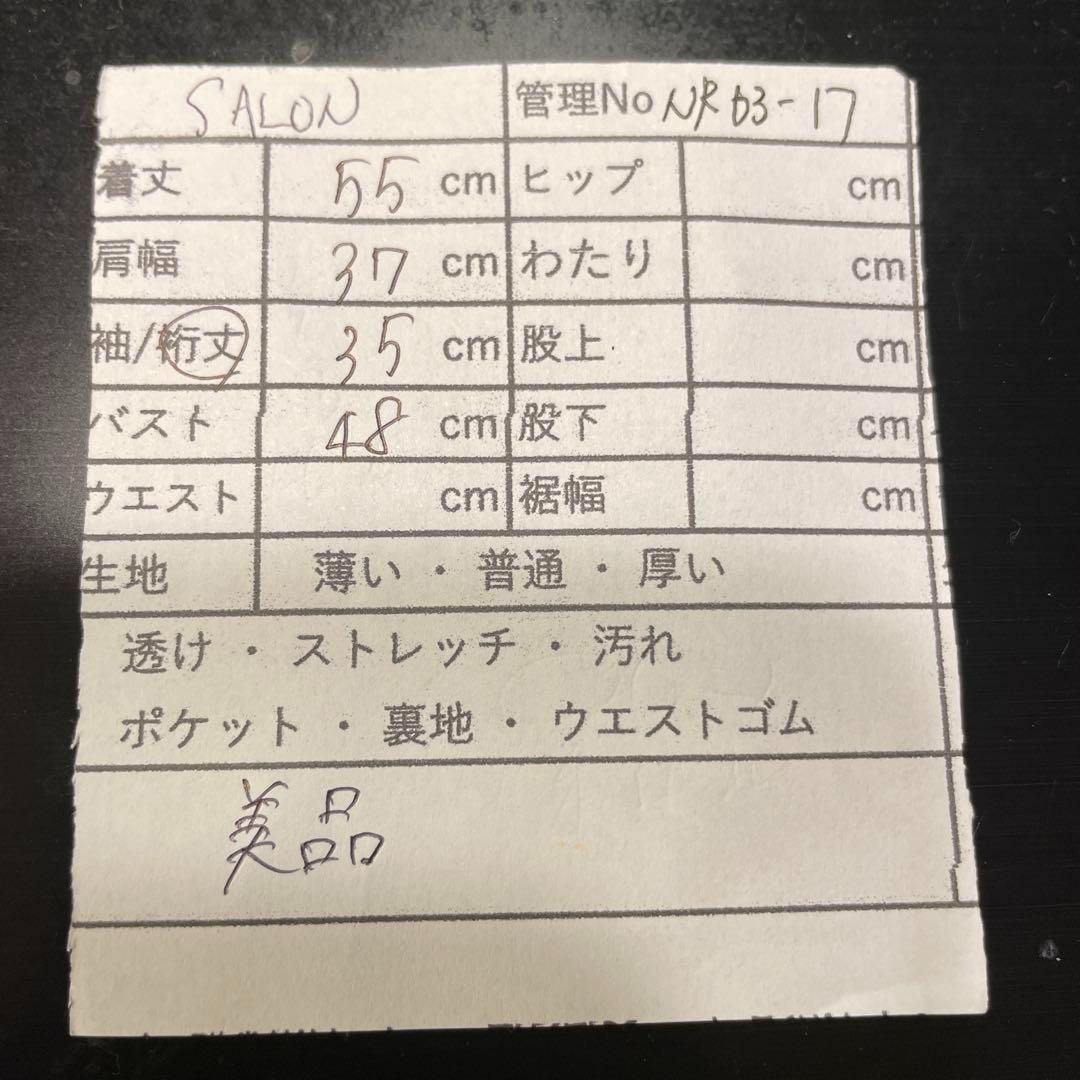 SALON 管理No NR03-17
着丈 55 cm ヒップ cm
肩幅 37 cm わたり cm
袖/裄丈 35 cm 股上 cm
バスト 48 cm 股下 cm
ウエスト cm 裾幅 cm
生地 薄い ・ 普通 ・ 厚い
透け ・ ストレッチ ・ 汚れ
ポケット ・ 裏地 ・ ウエストゴム
美品